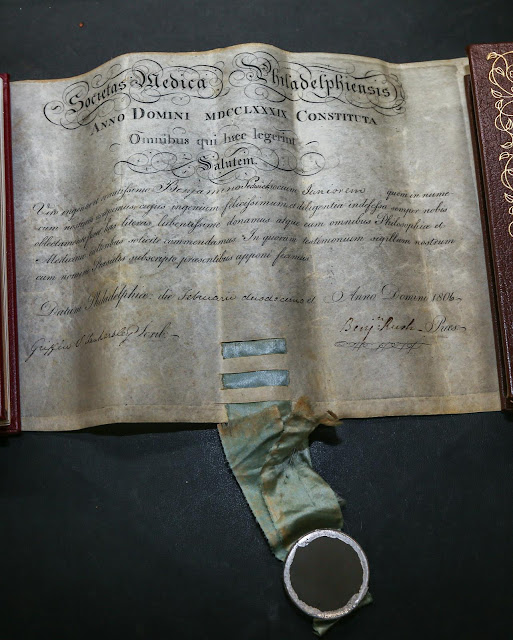 Societas Medica Philadelphiensis
Anno Domini MDCCLXXXIX Constituta
Omnibus qui hæc legerint
Salutem.
Viro ingenuo et ornatissimo Benjamino Juniorem quem in nume-
rum nostrum cujus ingenium felicissimum et diligentia indefessa semper nobis
has literas lubentissime donamus atque eum omnibus Philosophiæ et
Medicinæ solicite commendamus. In quorum testimonium sigillum nostrum
cum nomine Præsidis subscripto, præsentibus apponi fecimus
Datum Philadelphiæ, die Februarii duodecimo Anno Domini 1806
Benjn Rush Præs